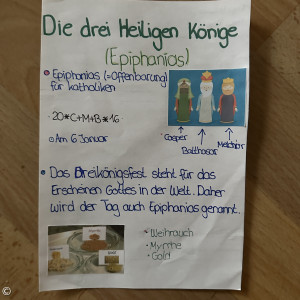 Die drei Heiligen Könige
(Epiphanias)
Epiphanias (=Offenbarung)
für Katholiken
20*C+M+B*16
Am 6 Januar
Casper
Balthasar
Melchior
Das Dreikönigsfest steht für das
Erscheinen Gottes in der Welt. Daher
wird der Tag auch Epiphanias genannt.
Weihrauch
Myrrhe
Gold